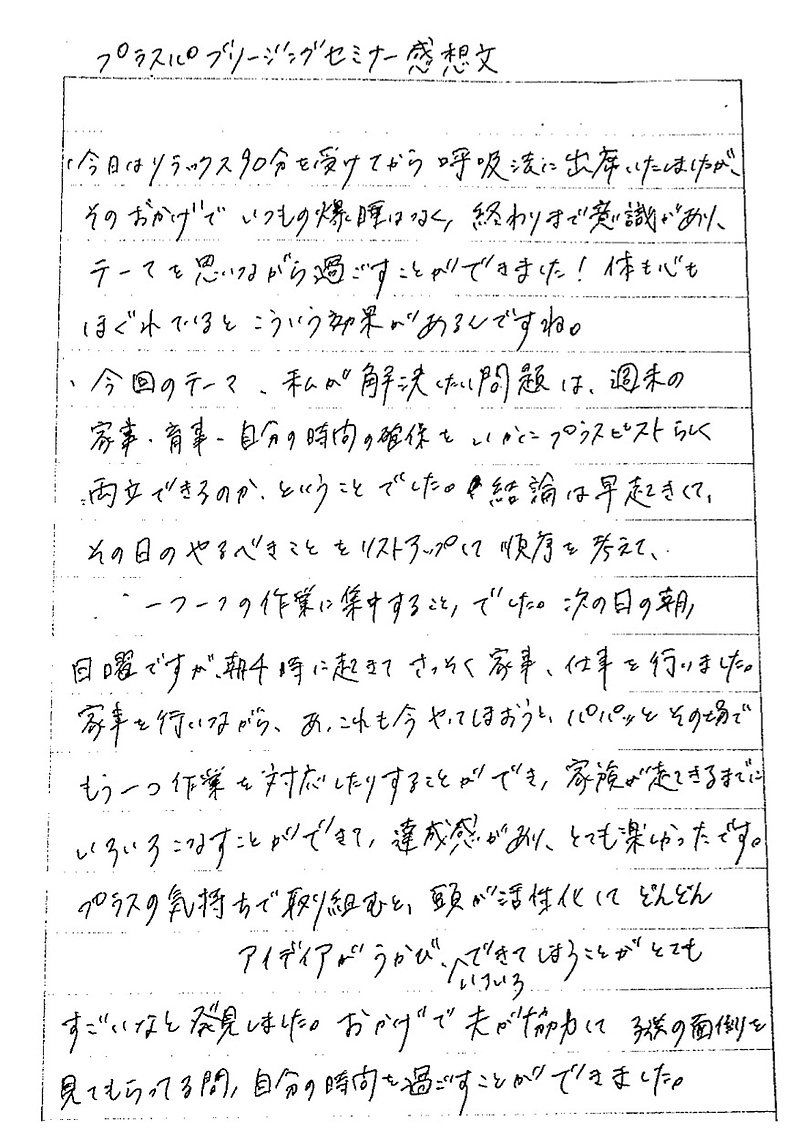 プラスパブリージングセミナー感想文
、今日はリラックス90分を受けてから呼吸法に出席いたしましたが、
そのおかげでいつもの爆睡はなく、終わりまで意識があり、
テーマを思いながら過ごすことができました！体も心も
ほぐれているとこういう効果があるんですね。
、今回のテーマ、私が解決したい問題は、週末の
家事・育事・自分の時間の確保をいかにプラスピストらしく
両立できるのか、ということでした。結論は早起きして、
その日のやるべきことをリストアップして順序を考えて、
一つ一つの作業に集中すること、でした。次の日の朝、
日曜ですが、朝4時に起きてさっそく家事、仕事を行いました。
家事を行いながら、あ、これも今やってしまおうと、パパッとその場で
もう一つ作業を対応したりすることができ、家族が起きるまでに
いろいろこなすことができて、達成感があり、とても楽しかったです。
プラスの気持ちで取り組むと、頭が活性化してどんどん
アイディアがうかび、いろいろできてしまうことがとても
すごいなと発見しました。おかげで夫が協力して子供の面倒を
見てもらってる間、自分の時間を過ごすことができました。